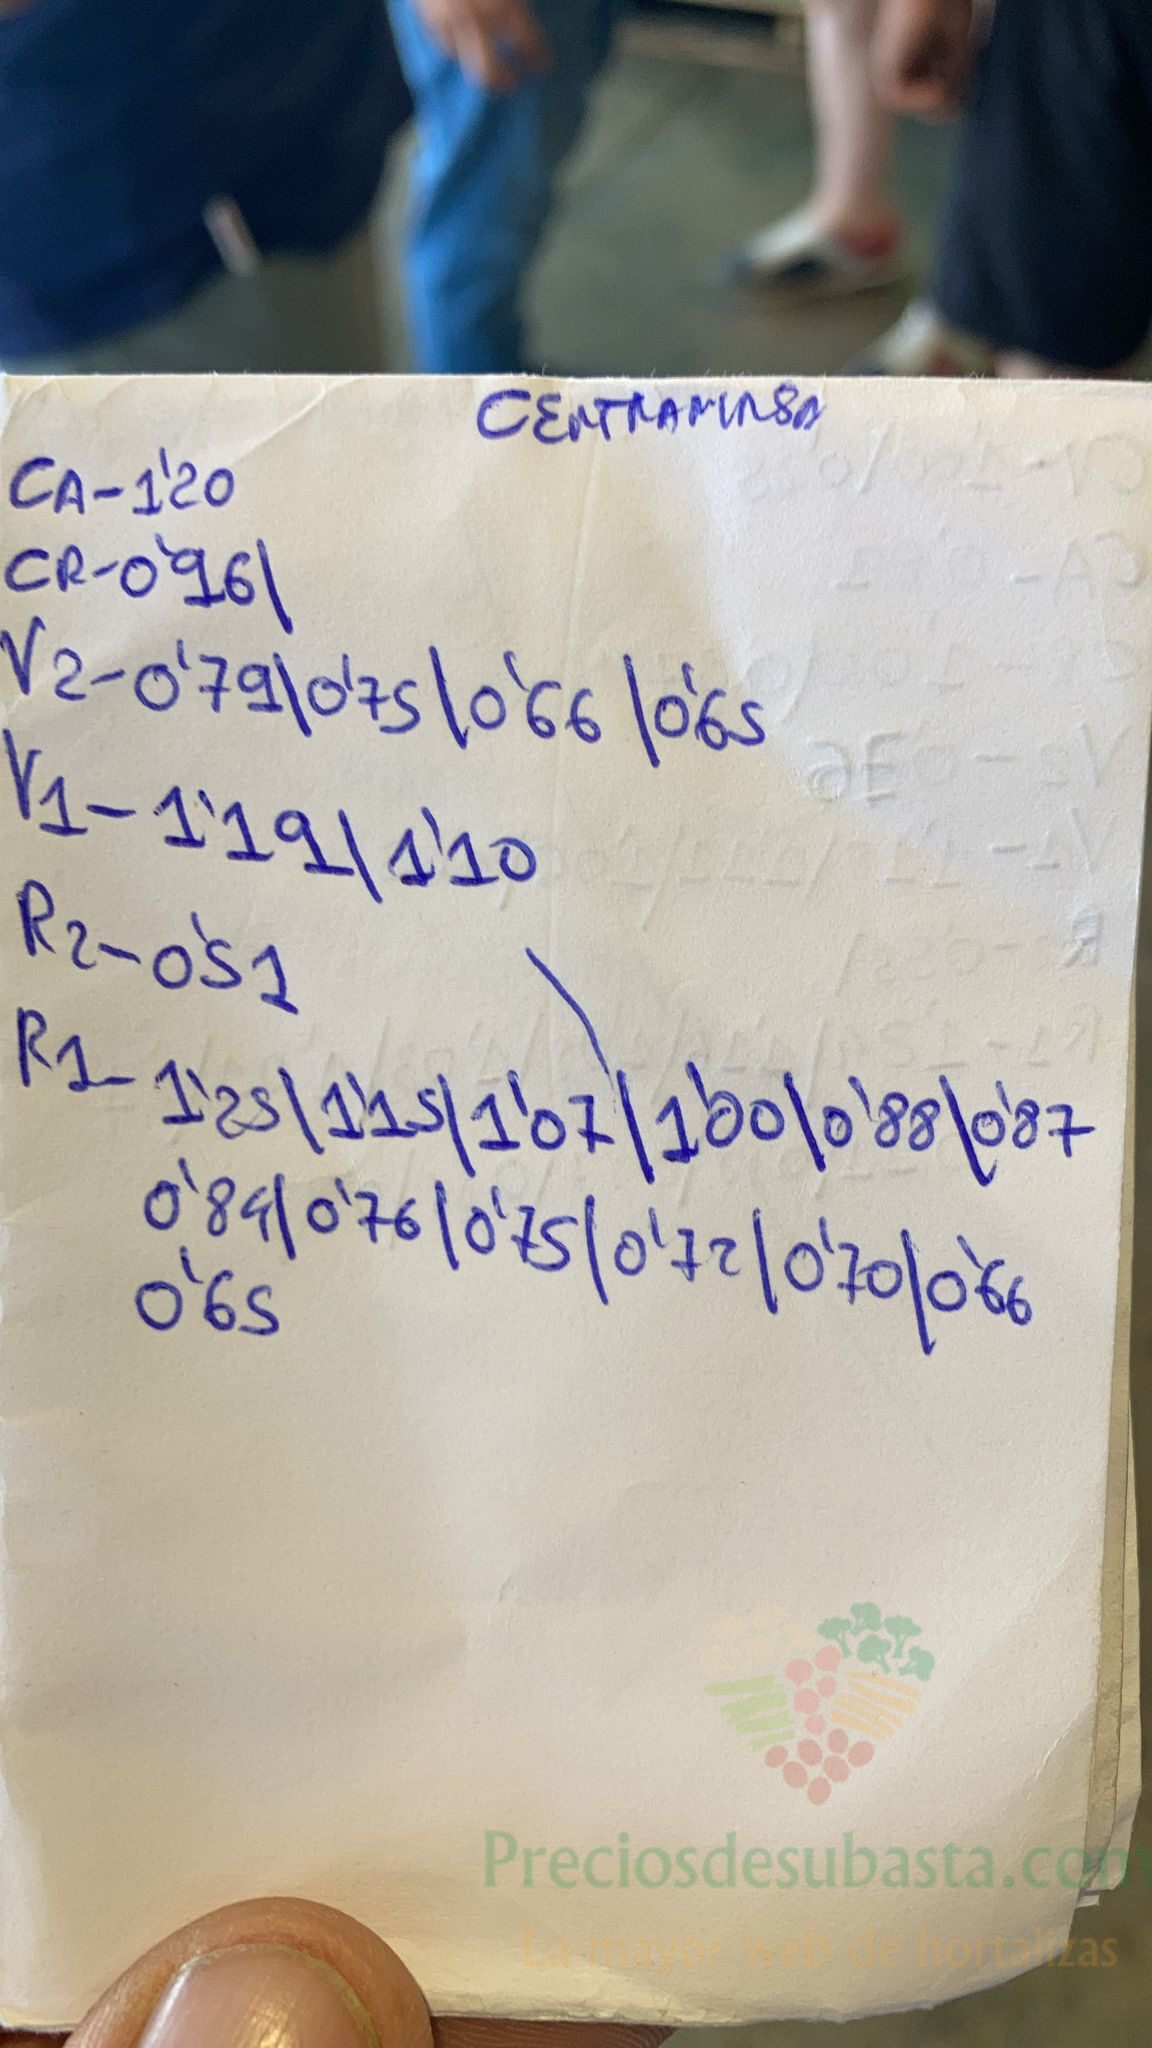 CENTRAMIRSA
CA-1'20
CR-0'96/
V2-0'79/0'75/0'66/0'65
V1-1'19/1'10
R2-0'51
R1-1'25/1'15/1'07/1'00/0'88/0'87
0'84/0'76/0'75/0'72/0'70/0'66
0'65
Preciosdesubasta.com
La mayor web de hortalizas